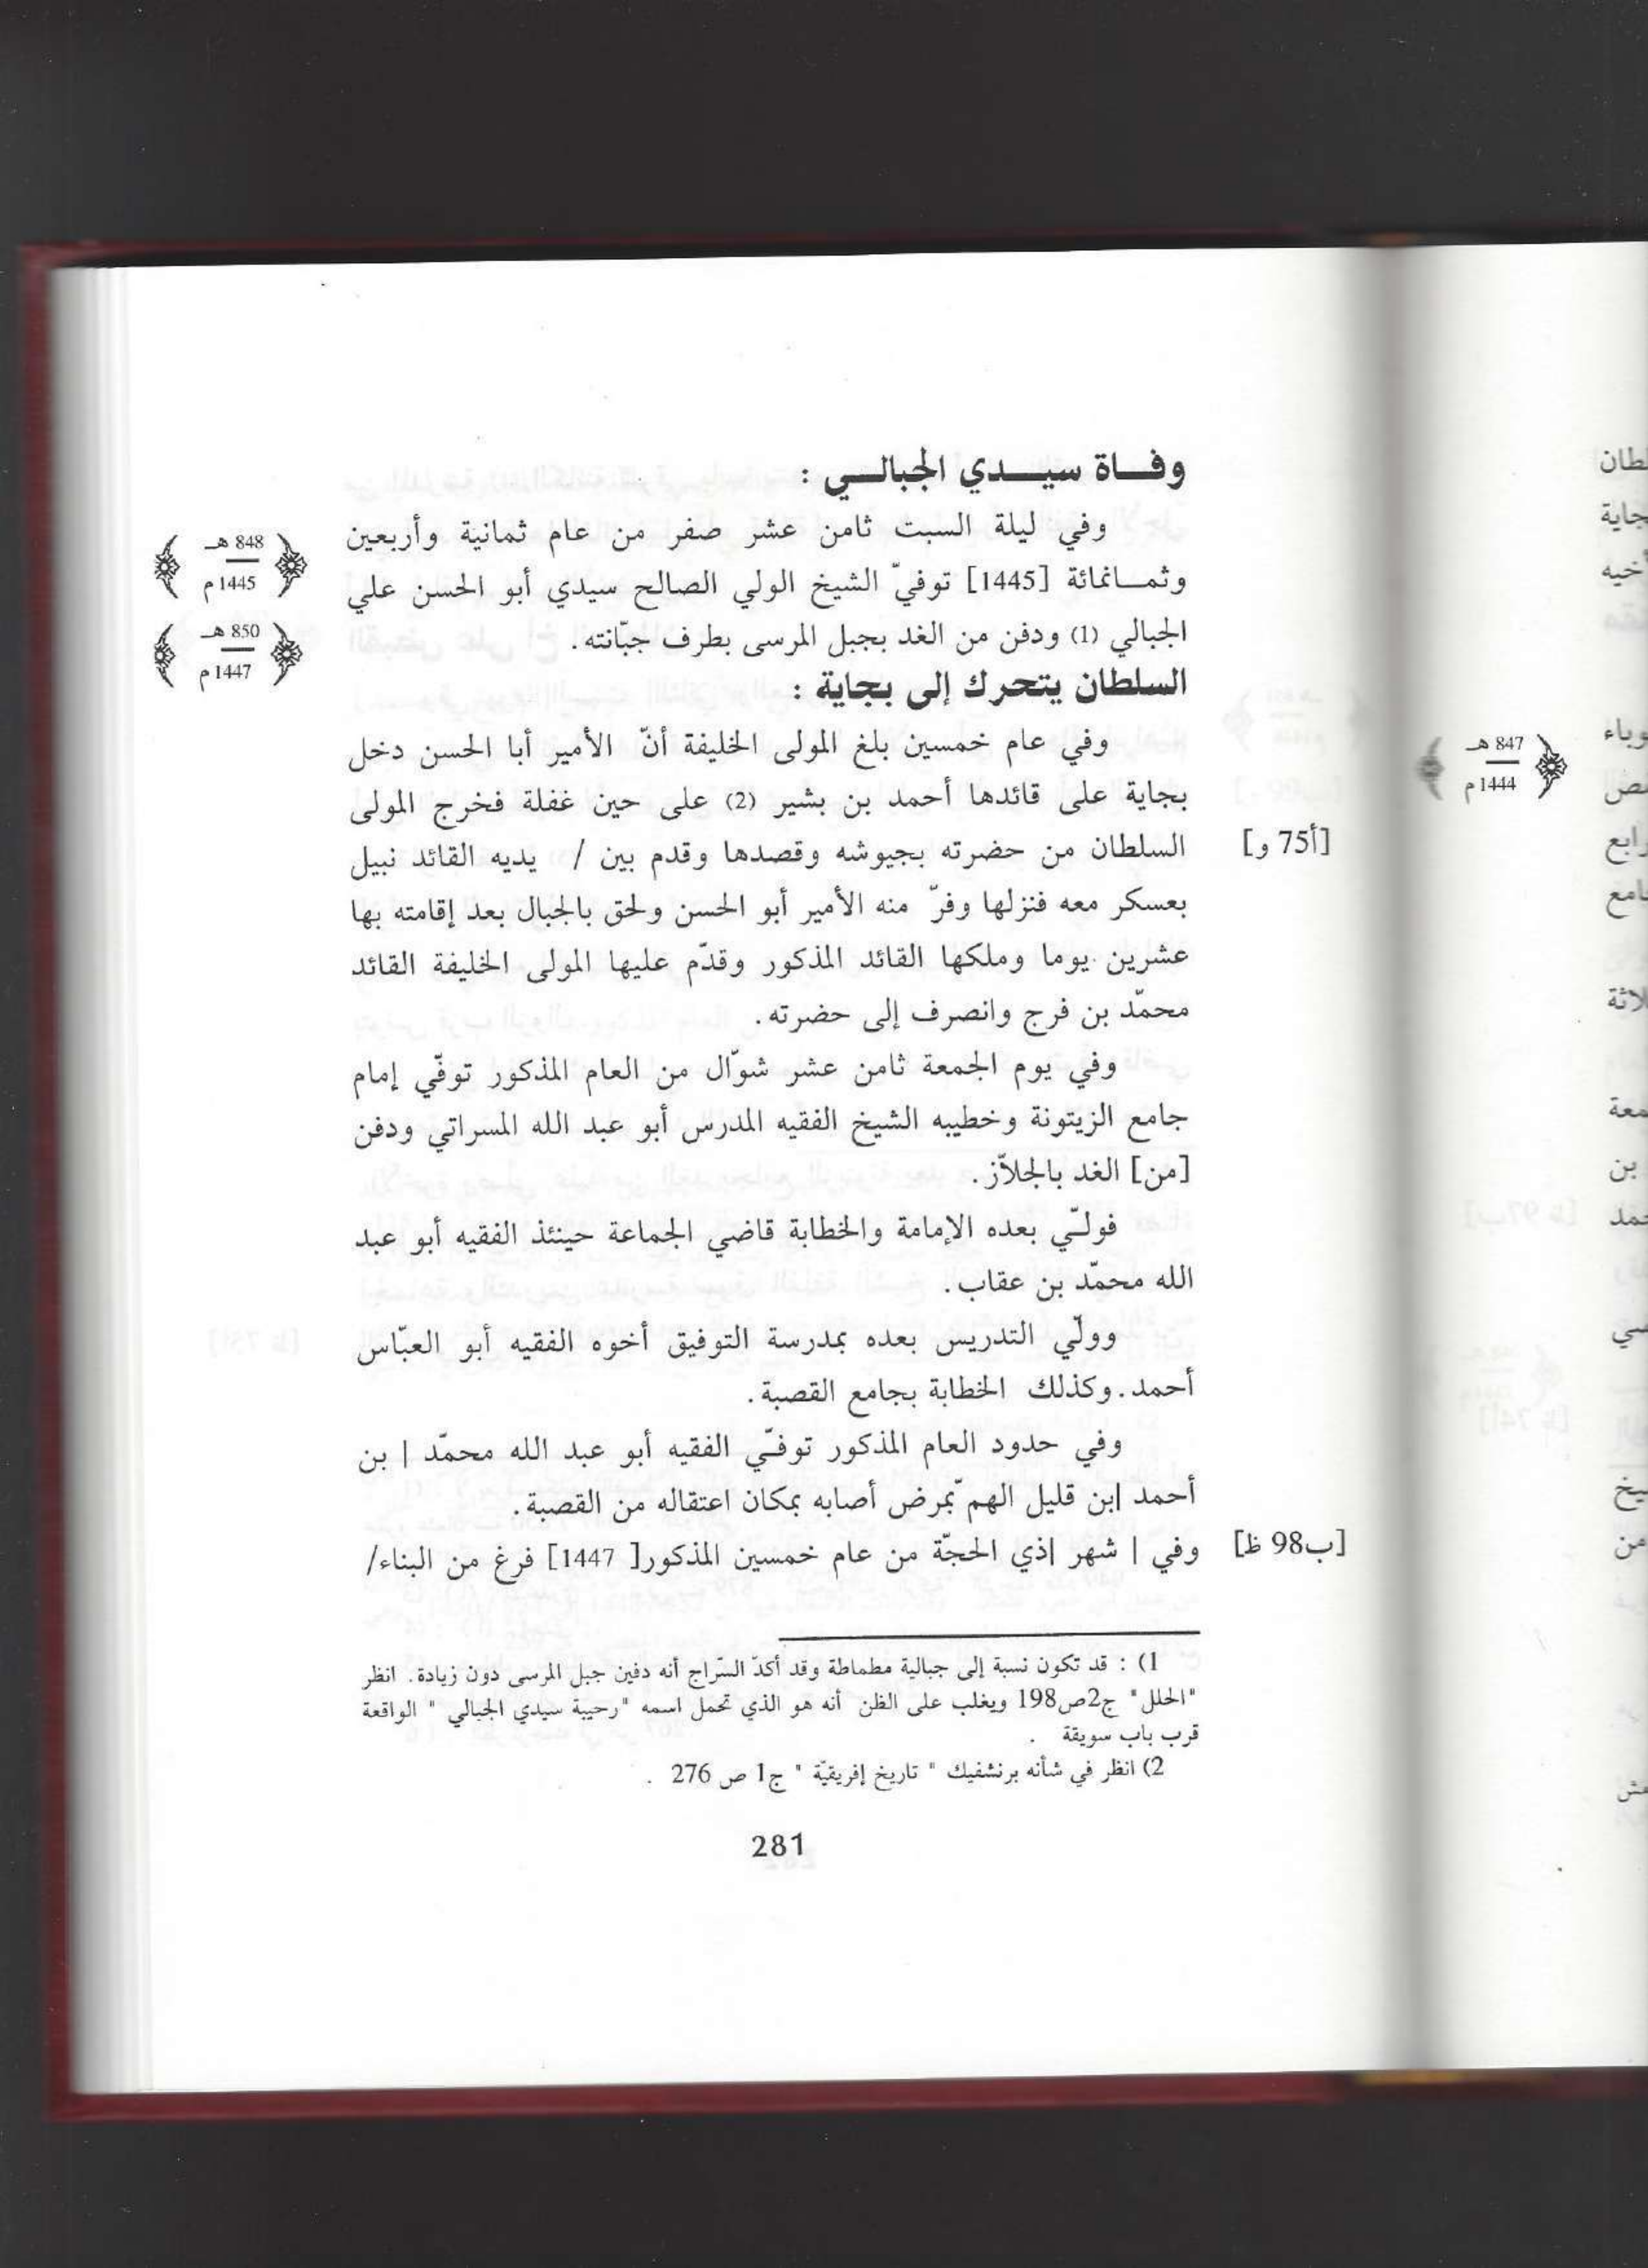 وفـــاة سيـــدي الجبالـــي :
وفي ليلة السبت ثامن عشر صفر من عام ثمانية وأربعين
848 هـ
1445 م
وثمــانمائة [1445] توفيّ الشيخ الولي الصالح سيدي أبو الحسن علي
الجبالي (1) ودفن من الغد بجبل المرسى بطرف جبّانته.
850 هـ
1447 م
السلطان يتحرك إلى بجاية :
وفي عام خمسين بلغ المولى الخليفة أنّ الأمير أبا الحسن دخل
بجاية على قائدها أحمد بن بشير (2) على حين غفلة فخرج المولى
[أ75 و] السلطان من حضرته بجيوشه وقصدها وقدم بين / يديه القائد نبيل
بعسكر معه فنزلها وفرّ منه الأمير أبو الحسن ولحق بالجبال بعد إقامته بها
عشرين يوما وملكها القائد المذكور وقدّم عليها المولى الخليفة القائد
محمّد بن فرج وانصرف إلى حضرته.
وفي يوم الجمعة ثامن عشر شوّال من العام المذكور توفّي إمام
جامع الزيتونة وخطيبه الشيخ الفقيه المدرس أبو عبد الله المسراتي ودفن
[من] الغد بالجلاّز.
فولّـي بعده الإمامة والخطابة قاضي الجماعة حينئذ الفقيه أبو عبد
الله محمّد بن عقاب.
وولّي التدريس بعده بمدرسة التوفيق أخوه الفقيه أبو العبّاس
أحمد. وكذلك الخطابة بجامع القصبة.
وفي حدود العام المذكور توفـّي الفقيه أبو عبد الله محمّد | بن
أحمد |بن قليل الهم ّبمرض أصابه بمكان اعتقاله من القصبة.
[ب98 ظ] وفي | شهر |ذي الحجّة من عام خمسين المذكور[ 1447] فرغ من البناء/
1) : قد تكون نسبة إلى جبالية مطماطة وقد أكدّ السّراج أنه دفين جبل المرسى دون زيادة. انظر
"الحلل" ج2ص198 ويغلب على الظن أنه هو الذي تحمل اسمه "رحيبة سيدي الجبالي " الواقعة
قرب باب سويقة .
2) انظر في شأنه برنشفيك " تاريخ إفريقيّة " ج1 ص 276 .
281
847 هـ
1444 م